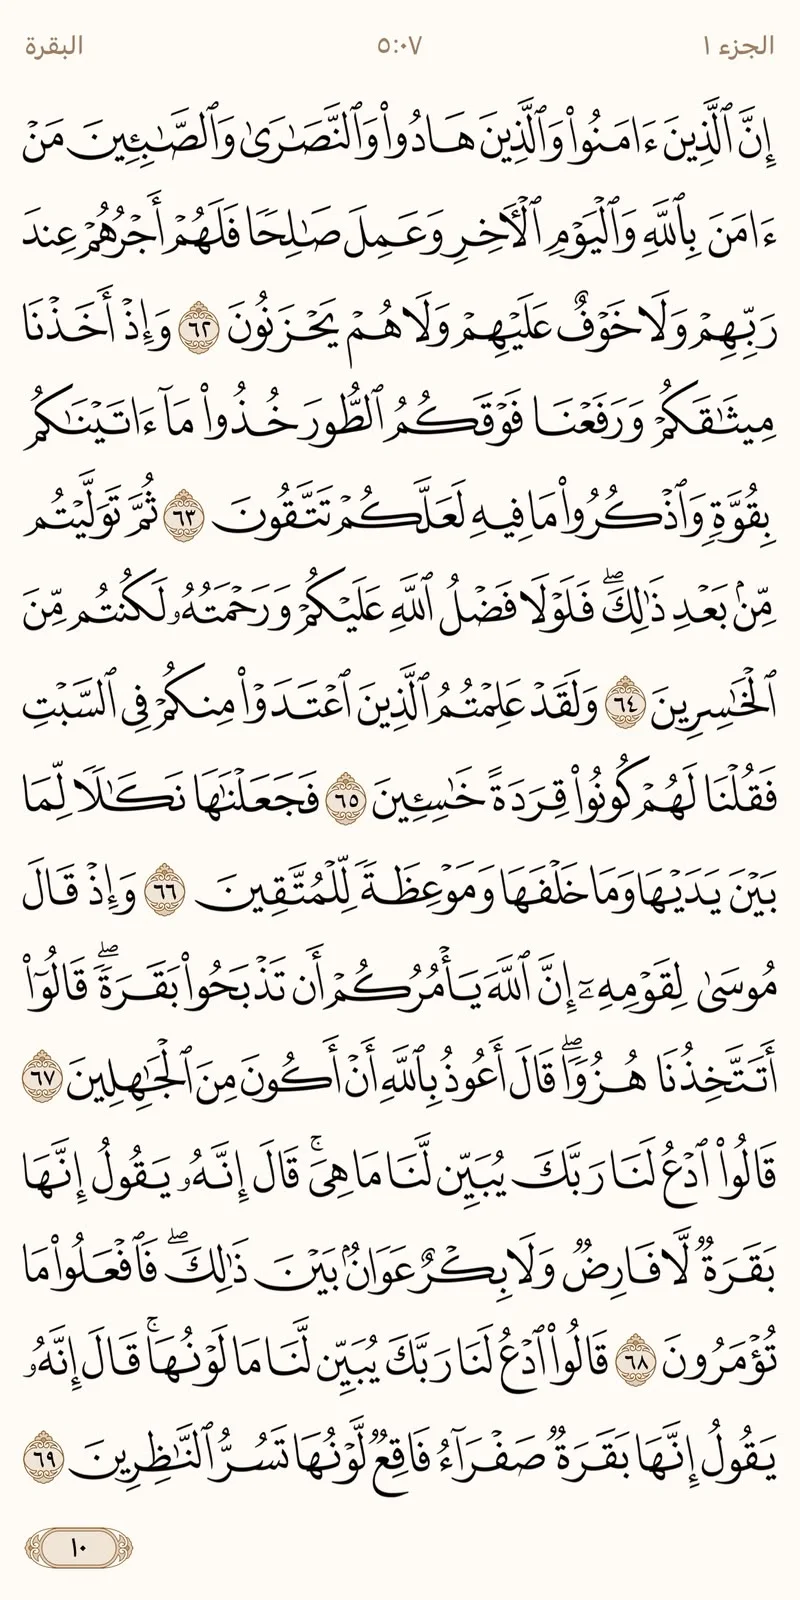 الجزء ١
٥:٠٧
البقرة
إِنَّ ٱلَّذِينَ ءَامَنُوا۟ وَٱلَّذِينَ هَادُوا۟ وَٱلنَّصَـٰرَىٰ وَٱلصَّـٰبِـِٔينَ مَنْ
ءَامَنَ بِٱللَّهِ وَٱلْيَوْمِ ٱلْـَٔاخِرِ وَعَمِلَ صَـٰلِحًا فَلَهُمْ أَجْرُهُمْ عِندَ
رَبِّهِمْ وَلَا خَوْفٌ عَلَيْهِمْ وَلَا هُمْ يَحْزَنُونَ ٦٢ وَإِذْ أَخَذْنَا
مِيثَـٰقَكُمْ وَرَفَعْنَا فَوْقَكُمُ ٱلطُّورَ خُذُوا۟ مَآ ءَاتَيْنَـٰكُم
بِقُوَّةٍ وَٱذْكُرُوا۟ مَا فِيهِ لَعَلَّكُمْ تَتَّقُونَ ٦٣ ثُمَّ تَوَلَّيْتُم
مِّنۢ بَعْدِ ذَٰلِكَ ۖ فَلَوْلَا فَضْلُ ٱللَّهِ عَلَيْكُمْ وَرَحْمَتُهُۥ لَكُنتُم مِّنَ
ٱلْخَـٰسِرِينَ ٦٤ وَلَقَدْ عَلِمْتُمُ ٱلَّذِينَ ٱعْتَدَوْا۟ مِنكُمْ فِى ٱلسَّبْتِ
فَقُلْنَا لَهُمْ كُونُوا۟ قِرَدَةً خَـٰسِـِٔينَ ٦٥ فَجَعَلْنَـٰهَا نَكَـٰلًا لِّمَا
بَيْنَ يَدَيْهَا وَمَا خَلْفَهَا وَمَوْعِظَةً لِّلْمُتَّقِينَ ٦٦ وَإِذْ قَالَ
مُوسَىٰ لِقَوْمِهِۦٓ إِنَّ ٱللَّهَ يَأْمُرُكُمْ أَن تَذْبَحُوا۟ بَقَرَةً ۖ قَالُوٓا۟
أَتَتَّخِذُنَا هُزُوًا ۖ قَالَ أَعُوذُ بِٱللَّهِ أَنْ أَكُونَ مِنَ ٱلْجَـٰهِلِينَ ٦٧
قَالُوا۟ ٱدْعُ لَنَا رَبَّكَ يُبَيِّن لَّنَا مَا هِىَ ۚ قَالَ إِنَّهُۥ يَقُولُ إِنَّهَا
بَقَرَةٌ لَّا فَارِضٌ وَلَا بِكْرٌ عَوَانٌۢ بَيْنَ ذَٰلِكَ ۖ فَٱفْعَلُوا۟ مَا
تُؤْمَرُونَ ٦٨ قَالُوا۟ ٱدْعُ لَنَا رَبَّكَ يُبَيِّن لَّنَا مَا لَوْنُهَا ۚ قَالَ إِنَّهُۥ
يَقُولُ إِنَّهَا بَقَرَةٌ صَفْرَآءُ فَاقِعٌ لَّوْنُهَا تَسُرُّ ٱلنَّـٰظِرِينَ ٦٩
١٠